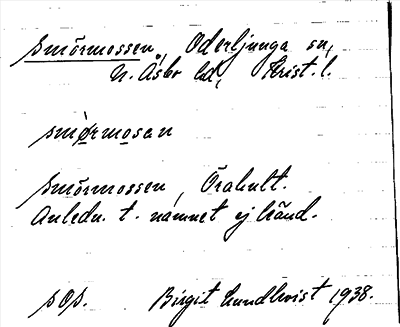 Smörmossen, Oderljunga sn,
N. Åsbo hd, Krist. l.
smø̀rmosan
Smörmossen, Örahult.
Anledn. t. namnet ej känd.
sop. Birgit Lundkvist 1938.